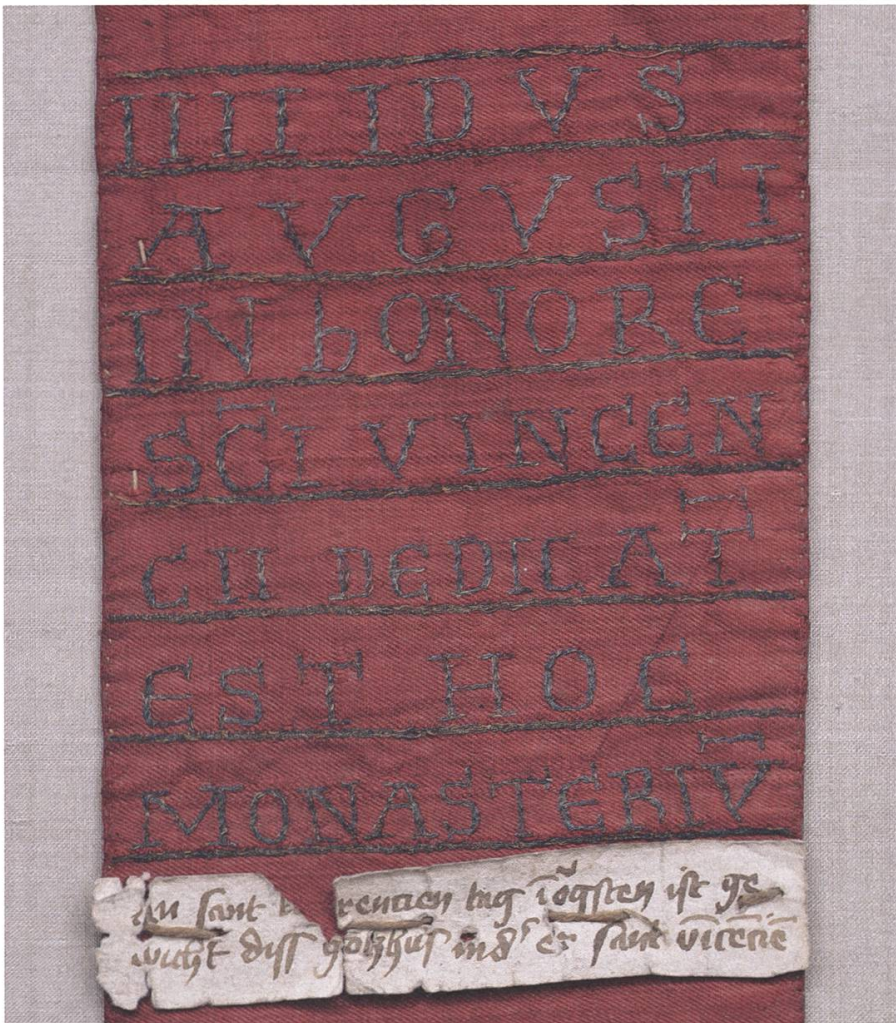 IIII IDVS
AVGVSTI
IN hONORE
SC̅I VINCEN
CII DEDICAT̅
EST HOC
MONASTERIV̅
an sant rencien tag ist ge
wicht diss gotzhus er sant